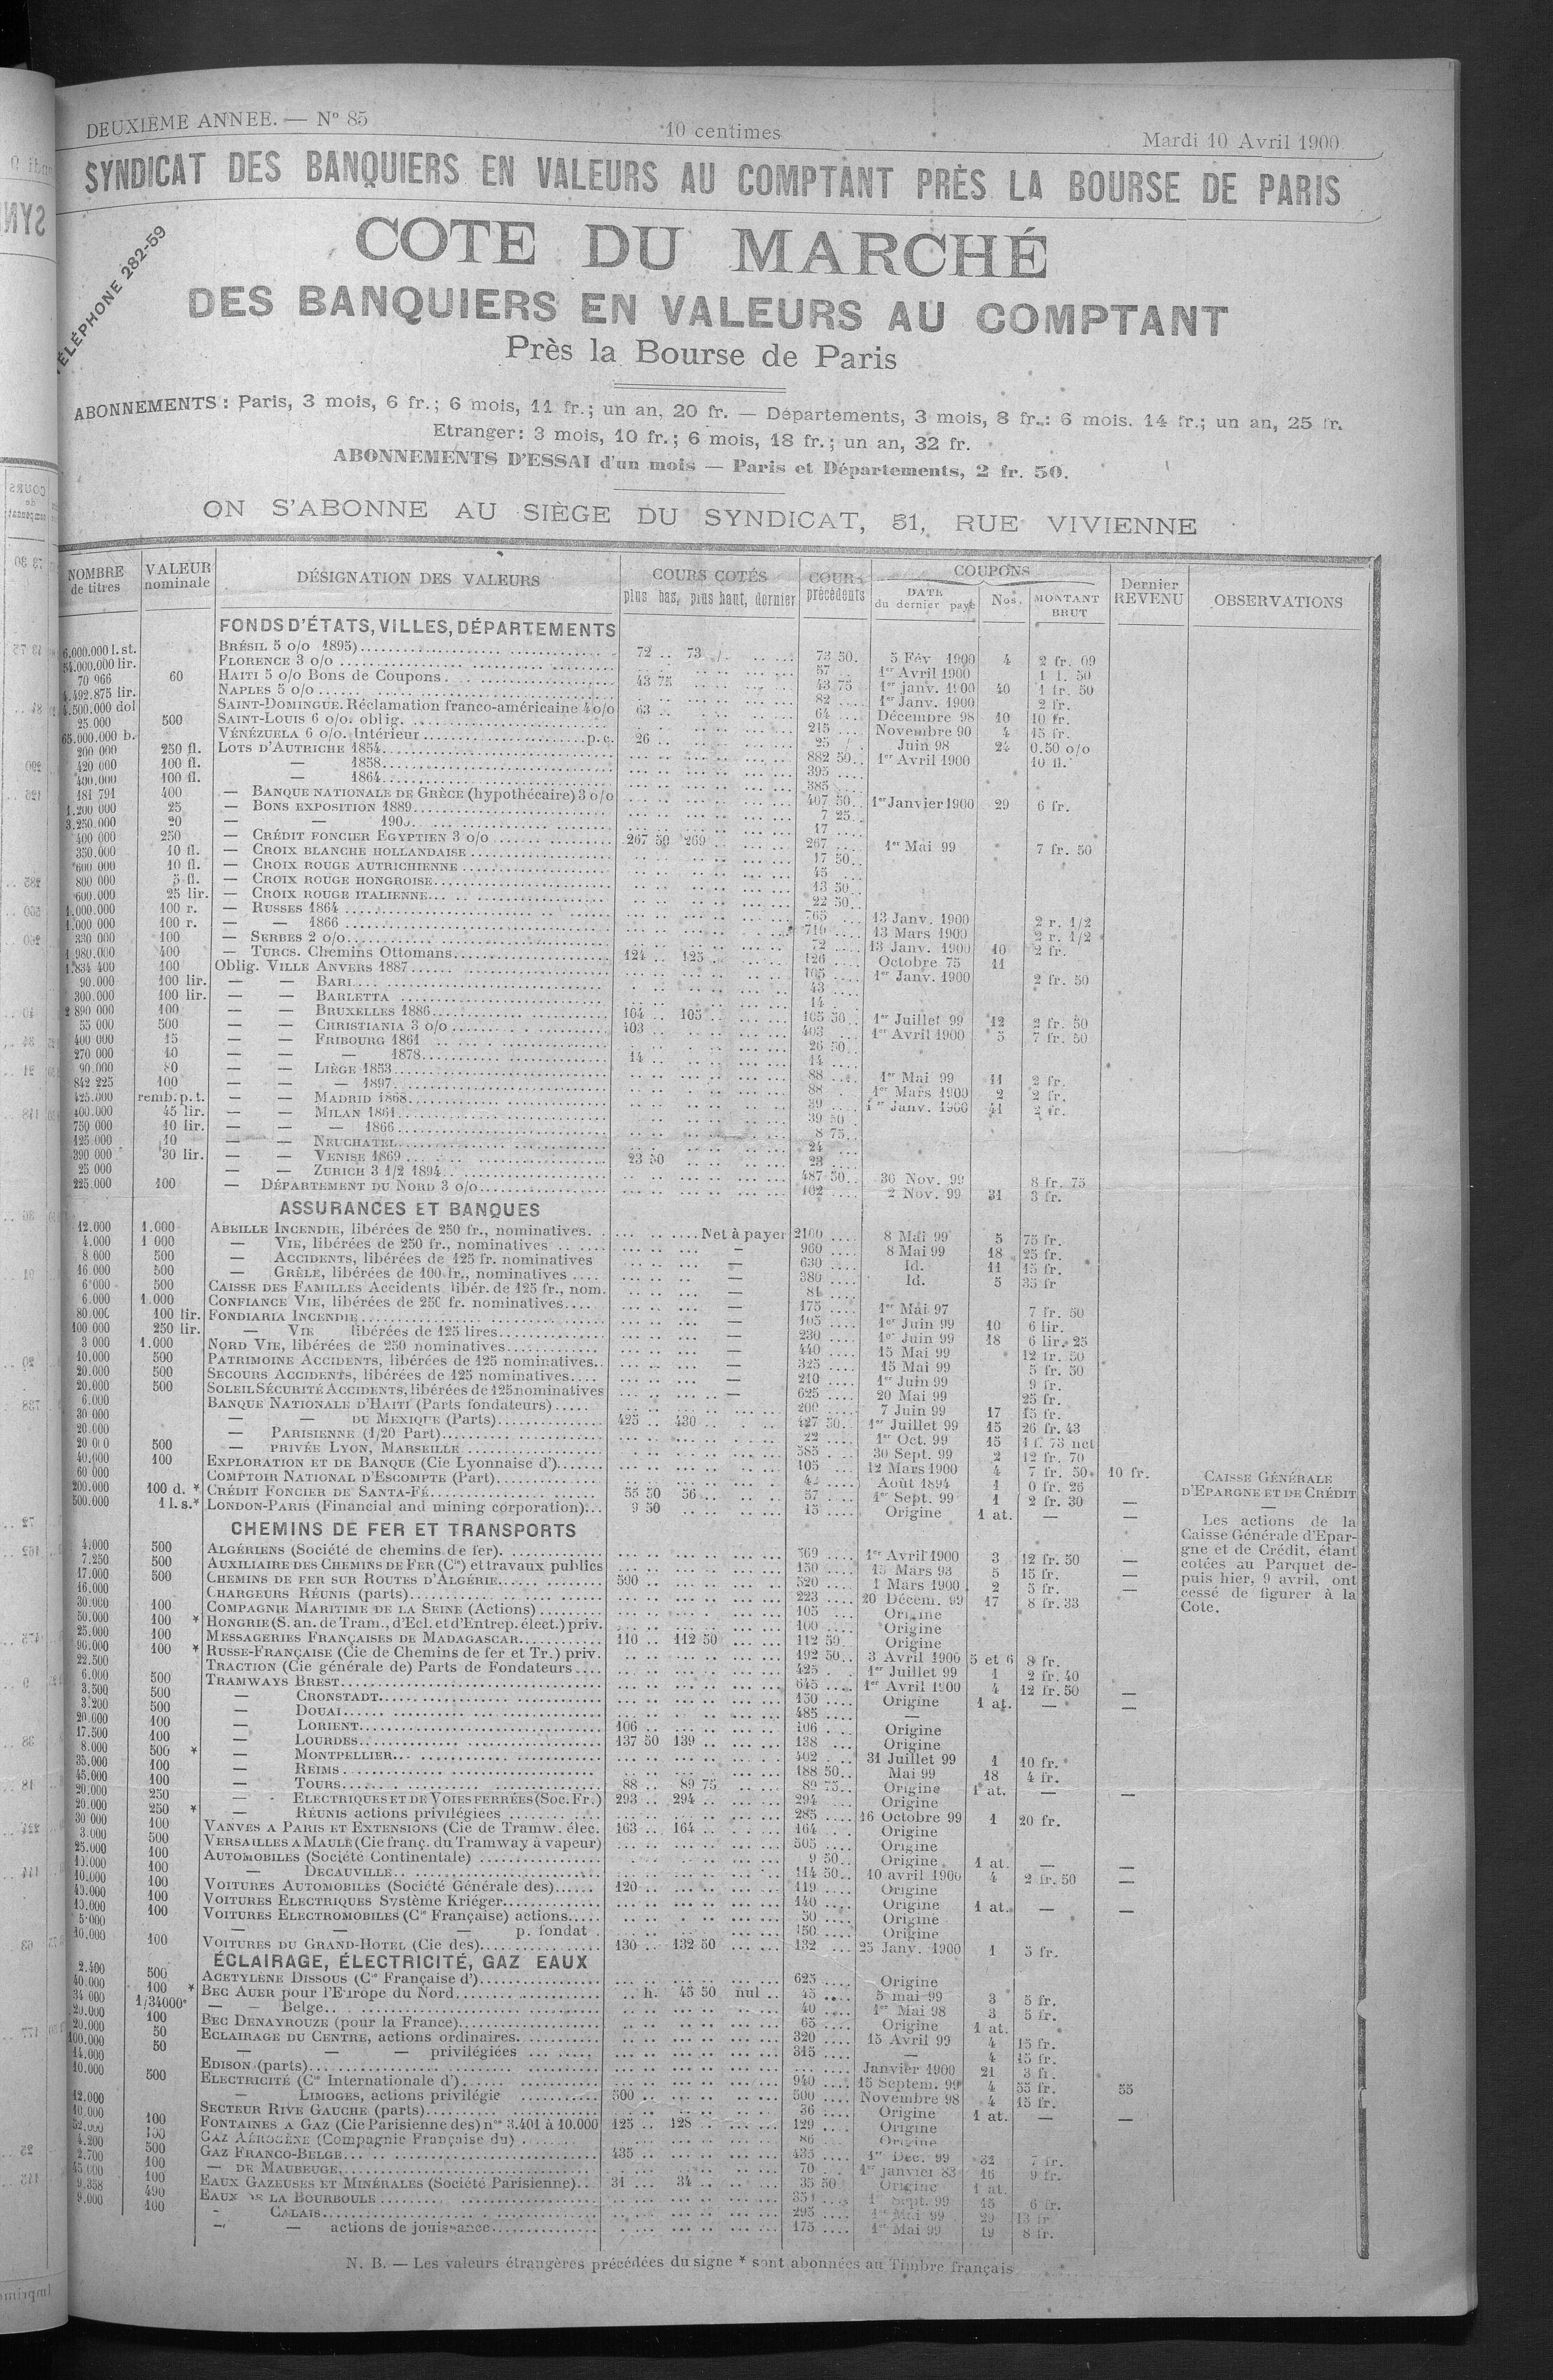 DEUXIÈME ANNEE. — N° 85
10 centimes
Mardi 10 Avril 1900
SYNDICAT DES BANQUIERS EN VALEURS AU COMPTANT PRÈS LA BOURSE DE PARIS
TÉLÉPHONE 282-59
COTE DU MARCHÉ
DES BANQUIERS EN VALEURS AU COMPTANT
Près la Bourse de Paris
ABONNEMENTS : Paris, 3 mois, 6 fr.; 6 mois, 11 fr.; un an, 20 fr. — Départements, 3 mois, 8 fr.: 6 mois. 14 fr.; un an, 25 fr.
Etranger: 3 mois, 10 fr.; 6 mois, 18 fr.; un an, 32 fr.
ABONNEMENTS D'ESSAI d'un mois — Paris et Départements, 2 fr. 50.
ON S'ABONNE AU SIÈGE DU SYNDICAT, 51, RUE VIVIENNE
NOMBRE de titres | VALEUR nominale | DÉSIGNATION DES VALEURS | COURS COTÉS plus bas, plus haut, dernier | COURS précédents | COUPONS DATE du dernier payé | Nos. | MONTANT BRUT | Dernier REVENU | OBSERVATIONS
FONDS D'ÉTATS, VILLES, DÉPARTEMENTS
6.000.000 l. st. BRÉSIL 5 o/o 1895) 72 73 73 50 5 Fév 1900 4 2 fr. 09
54.000.000 lir. FLORENCE 3 o/o 57 1er Avril 1900 50
70 966 60 HAITI 5 o/o Bons de Coupons 43 75 43 75 1er janv. 1900 40 1 fr. 50
4.492.875 lir. NAPLES 5 o/o 82 1er Janv. 1900 2 fr.
4.500.000 dol SAINT-DOMINGUE. Réclamation franco-américaine 4 o/o 63 64 Décembre 98 10 10 fr.
25.000 500 SAINT-LOUIS 6 o/o. oblig. 215 Novembre 90 4 15 fr.
65.000.000 b. VÉNÉZUELA 6 o/o. Intérieur p.c. 26 25 Juin 98 24 0.50 o/o
200 000 250 fl. LOTS D'AUTRICHE 1854 882 50 1er Avril 1900 10 fl.
420 000 100 fl. — 1858 395
400.000 100 fl. — 1864 385
181 791 400 — BANQUE NATIONALE DE GRÈCE (hypothécaire) 3 o/o 407 50 1er Janvier 1900 29 6 fr.
1.200 000 25 — BONS EXPOSITION 1889 7 25
3.250.000 20 — — 1900 17
400 000 250 — CRÉDIT FONCIER EGYPTIEN 3 o/o 267 50 269 267 1er Mai 99 7 fr. 50
350.000 10 fl. — CROIX BLANCHE HOLLANDAISE 17 50
600 000 10 fl. — CROIX ROUGE AUTRICHIENNE 45
800 000 5 fl. — CROIX ROUGE HONGROISE 13 50
600.000 25 lir. — CROIX ROUGE ITALIENNE 22 50
1.000.000 100 r. — RUSSES 1864 765 13 Janv. 1900 2 r. 1/2
1.000 000 100 r. — — 1866 710 13 Mars 1900 2 r. 1/2
330 000 100 — SERBES 2 o/o 72 13 Janv. 1900 10 2 fr.
1 980.000 400 — TURCS. Chemins Ottomans 124 125 126 Octobre 75 11
1.834 400 100 Oblig. VILLE ANVERS 1887 105 1er Janv. 1900 2 fr. 50
90.000 100 lir. — — BARI 43
300.000 100 lir. — — BARLETTA 14
2 890 000 100 — — BRUXELLES 1886 104 105 105 50 1er Juillet 99 12 2 fr. 50
55 000 500 — — CHRISTIANIA 3 o/o 403 403 1er Avril 1900 5 7 fr. 50
400 000 15 — — FRIBOURG 1861 26 50
270 000 10 — — — 1878 14 14
90.000 80 — — LIÈGE 1853 88 1er Mai 99 11 2 fr.
842 225 100 — — — 1897 88 1er Mars 1900 2 2 fr.
425.000 remb. p. t. — — MADRID 1868 39 1er Janv. 1900 41 2 fr.
400.000 45 lir. — — MILAN 1861 39 50
750 000 10 lir. — — — 1866 8 75
125.000 10 — — NEUCHATEL 24
390 000 30 lir. — — VENISE 1869 23 50 23
25 000 — — ZURICH 3 1/2 1894 487 50 30 Nov. 99 8 fr. 75
225.000 100 — DÉPARTEMENT DU NORD 3 o/o 102 2 Nov. 99 31 3 fr.
ASSURANCES ET BANQUES
12.000 1.000 ABEILLE INCENDIE, libérées de 250 fr., nominatives. Net à payer 2100 8 Mai 99 5 75 fr.
4.000 1 000 — VIE, libérées de 250 fr., nominatives — 960 8 Mai 99 18 25 fr.
8 000 500 — ACCIDENTS, libérées de 125 fr. nominatives — 630 Id. 11 15 fr.
16 000 500 — GRÊLE, libérées de 100 fr., nominatives — 380 Id. 5 35 fr
6.000 500 CAISSE DES FAMILLES Accidents libér. de 125 fr., nom. — 81
6.000 1.000 CONFIANCE VIE, libérées de 250 fr. nominatives — 175 1er Mai 97 7 fr. 50
80.000 100 lir. FONDIARIA INCENDIE — 105 1er Juin 99 10 6 lir.
100 000 250 lir. — VIE libérées de 125 lires — 230 1er Juin 99 18 6 lir. 25
3 000 1.000 NORD VIE, libérées de 250 nominatives — 440 15 Mai 99 12 fr. 50
10.000 500 PATRIMOINE ACCIDENTS, libérées de 125 nominatives — 325 15 Mai 99 5 fr. 50
20.000 500 SECOURS ACCIDENTS, libérées de 125 nominatives — 210 1er Juin 99 9 fr.
20.000 500 SOLEIL SÉCURITÉ ACCIDENTS, libérées de 125 nominatives — 625 20 Mai 99 25 fr.
6.000 BANQUE NATIONALE D'HAITI (Parts fondateurs) 200 7 Juin 99 17 15 fr.
30 000 — — DU MEXIQUE (Parts) 425 430 427 50 1er Juillet 99 15 26 fr. 43
20.000 — PARISIENNE (1/20 Part) 22 1er Oct. 99 15 1 f. 73 net
20 000 500 — PRIVÉE LYON, MARSEILLE 585 30 Sept. 99 2 12 fr. 70
40.000 100 EXPLORATION ET DE BANQUE (Cie Lyonnaise d') 105 12 Mars 1900 4 7 fr. 50 10 fr.
60 000 COMPTOIR NATIONAL D'ESCOMPTE (Part) Août 1894 1 0 fr. 26
200.000 100 d. * CRÉDIT FONCIER DE SANTA-FÉ 55 50 56 57 1er Sept. 99 1 2 fr. 30 —
500.000 1 l.s.* LONDON-PARIS (Financial and mining corporation) 9 50 15 Origine 1 at. — —
CHEMINS DE FER ET TRANSPORTS
4.000 500 ALGÉRIENS (Société de chemins de fer). 569 1er Avril 1900 3 12 fr. 50 —
7.250 500 AUXILIAIRE DES CHEMINS DE FER (Cie) et travaux publics 150 15 Mars 93 5 15 fr. —
17.000 500 CHEMINS DE FER SUR ROUTES D'ALGÉRIE 500 520 1 Mars 1900 2 5 fr. —
16.000 CHARGEURS RÉUNIS (parts) 223 20 Décem. 99 17 8 fr. 33
30.000 100 COMPAGNIE MARITIME DE LA SEINE (Actions) 105 Origine
50.000 100 * HONGRIE (S. an. de Tram., d'Ecl. et d'Entrep. élect.) priv. 100 Origine
25.000 100 MESSAGERIES FRANÇAISES DE MADAGASCAR 110 112 50 112 50 Origine
96.000 100 * RUSSE-FRANÇAISE (Cie de Chemins de fer et Tr.) priv. 192 50 3 Avril 1900 5 et 6 8 fr.
22.500 TRACTION (Cie générale de) Parts de Fondateurs 425 1er Juillet 99 1 2 fr. 40
6.000 500 TRAMWAYS BREST 645 1er Avril 1900 4 12 fr. 50 —
3.500 500 — CRONSTADT 150 Origine 1 at. — —
3.200 500 — DOUAI 485 —
20.000 100 — LORIENT 106 106 Origine
17.500 100 — LOURDES 137 50 139 138 Origine
8.000 500 * — MONTPELLIER 402 31 Juillet 99 1 10 fr.
35.000 100 — REIMS 188 50 Mai 99 18 4 fr.
45.000 100 — TOURS 88 89 75 89 75 Origine 1 at. — —
20.000 250 — ELECTRIQUES ET DE VOIES FERRÉES (Soc. Fr.) 293 294 294 Origine
20.000 250 * — RÉUNIS actions privilégiées 285 16 Octobre 99 1 20 fr.
30 000 100 VANVES A PARIS ET EXTENSIONS (Cie de Tramw. élec. 163 164 164 Origine
3.000 500 VERSAILLES A MAULE (Cie franç. du Tramway à vapeur) 505 Origine
25.000 100 AUTOMOBILES (Société Continentale) 9 50 Origine 1 at. — —
10.000 100 — DECAUVILLE 114 50 10 avril 1900 4 2 fr. 50 —
10.000 100 VOITURES AUTOMOBILES (Société Générale des) 120 119 Origine
40.000 100 VOITURES ELECTRIQUES Système Kriéger 140 Origine 1 at. — —
10.000 100 VOITURES ELECTROMOBILES (Cie Française) actions 50 Origine
5.000 — — — p. fondat. 150 Origine
10.000 100 VOITURES DU GRAND-HOTEL (Cie des) 130 132 50 132 25 Janv. 1900 1 5 fr.
ÉCLAIRAGE, ÉLECTRICITÉ, GAZ EAUX
2.400 500 ACETYLÈNE DISSOUS (Cie Française d') 625 Origine
40.000 100 * BEC AUER pour l'Europe du Nord h. 45 50 nul 45 5 mai 99 3 5 fr.
34.000 1/34000e — — Belge 40 1er Mai 98 3 5 fr.
20.000 100 BEC DENAYROUZE (pour la France) 65 Origine 1 at.
20.000 50 ECLAIRAGE DU CENTRE, actions ordinaires. 320 15 Avril 99 4 15 fr.
100.000 50 — — — privilégiées 315 — 4 15 fr.
14.000 EDISON (parts) Janvier 1900 21 3 fr.
10.000 500 ELECTRICITÉ (Cie Internationale d') 940 15 Septem. 99 4 55 fr. 55
— LIMOGES, actions privilégie 500 500 Novembre 98 4 15 fr.
12.000 SECTEUR RIVE GAUCHE (parts) 36 Origine 1 at. — —
10.000 100 FONTAINES A GAZ (Cie Parisienne des) nos 3.401 à 10.000 125 128 129 Origine
52.000 100 GAZ AÉROGÈNE (Compagnie Française du) 86 Origine
4.200 500 GAZ FRANCO-BELGE 435 435 1er Déc. 99 32 7 fr.
2.700 100 — DE MAUBEUGE 70 1er janvier 83 16 9 fr.
45.000 100 EAUX GAZEUSES ET MINÉRALES (Société Parisienne) 31 34 35 50 Origine 1 at.
9.358 490 EAUX DE LA BOURBOULE 351 1er Sept. 99 15 6 fr.
9.000 100 — CALAIS 295 1er Mai 99 29 13 fr
— — actions de jouissance 175 1er Mai 99 19 8 fr.
CAISSE GÉNÉRALE
D'EPARGNE ET DE CRÉDIT
—
Les actions de la
Caisse Générale d'Epar-
gne et de Crédit, étant
cotées au Parquet de-
puis hier, 9 avril, ont
cessé de figurer à la
Cote.
N. B. — Les valeurs étrangères précédées du signe * sont abonnées au Timbre français